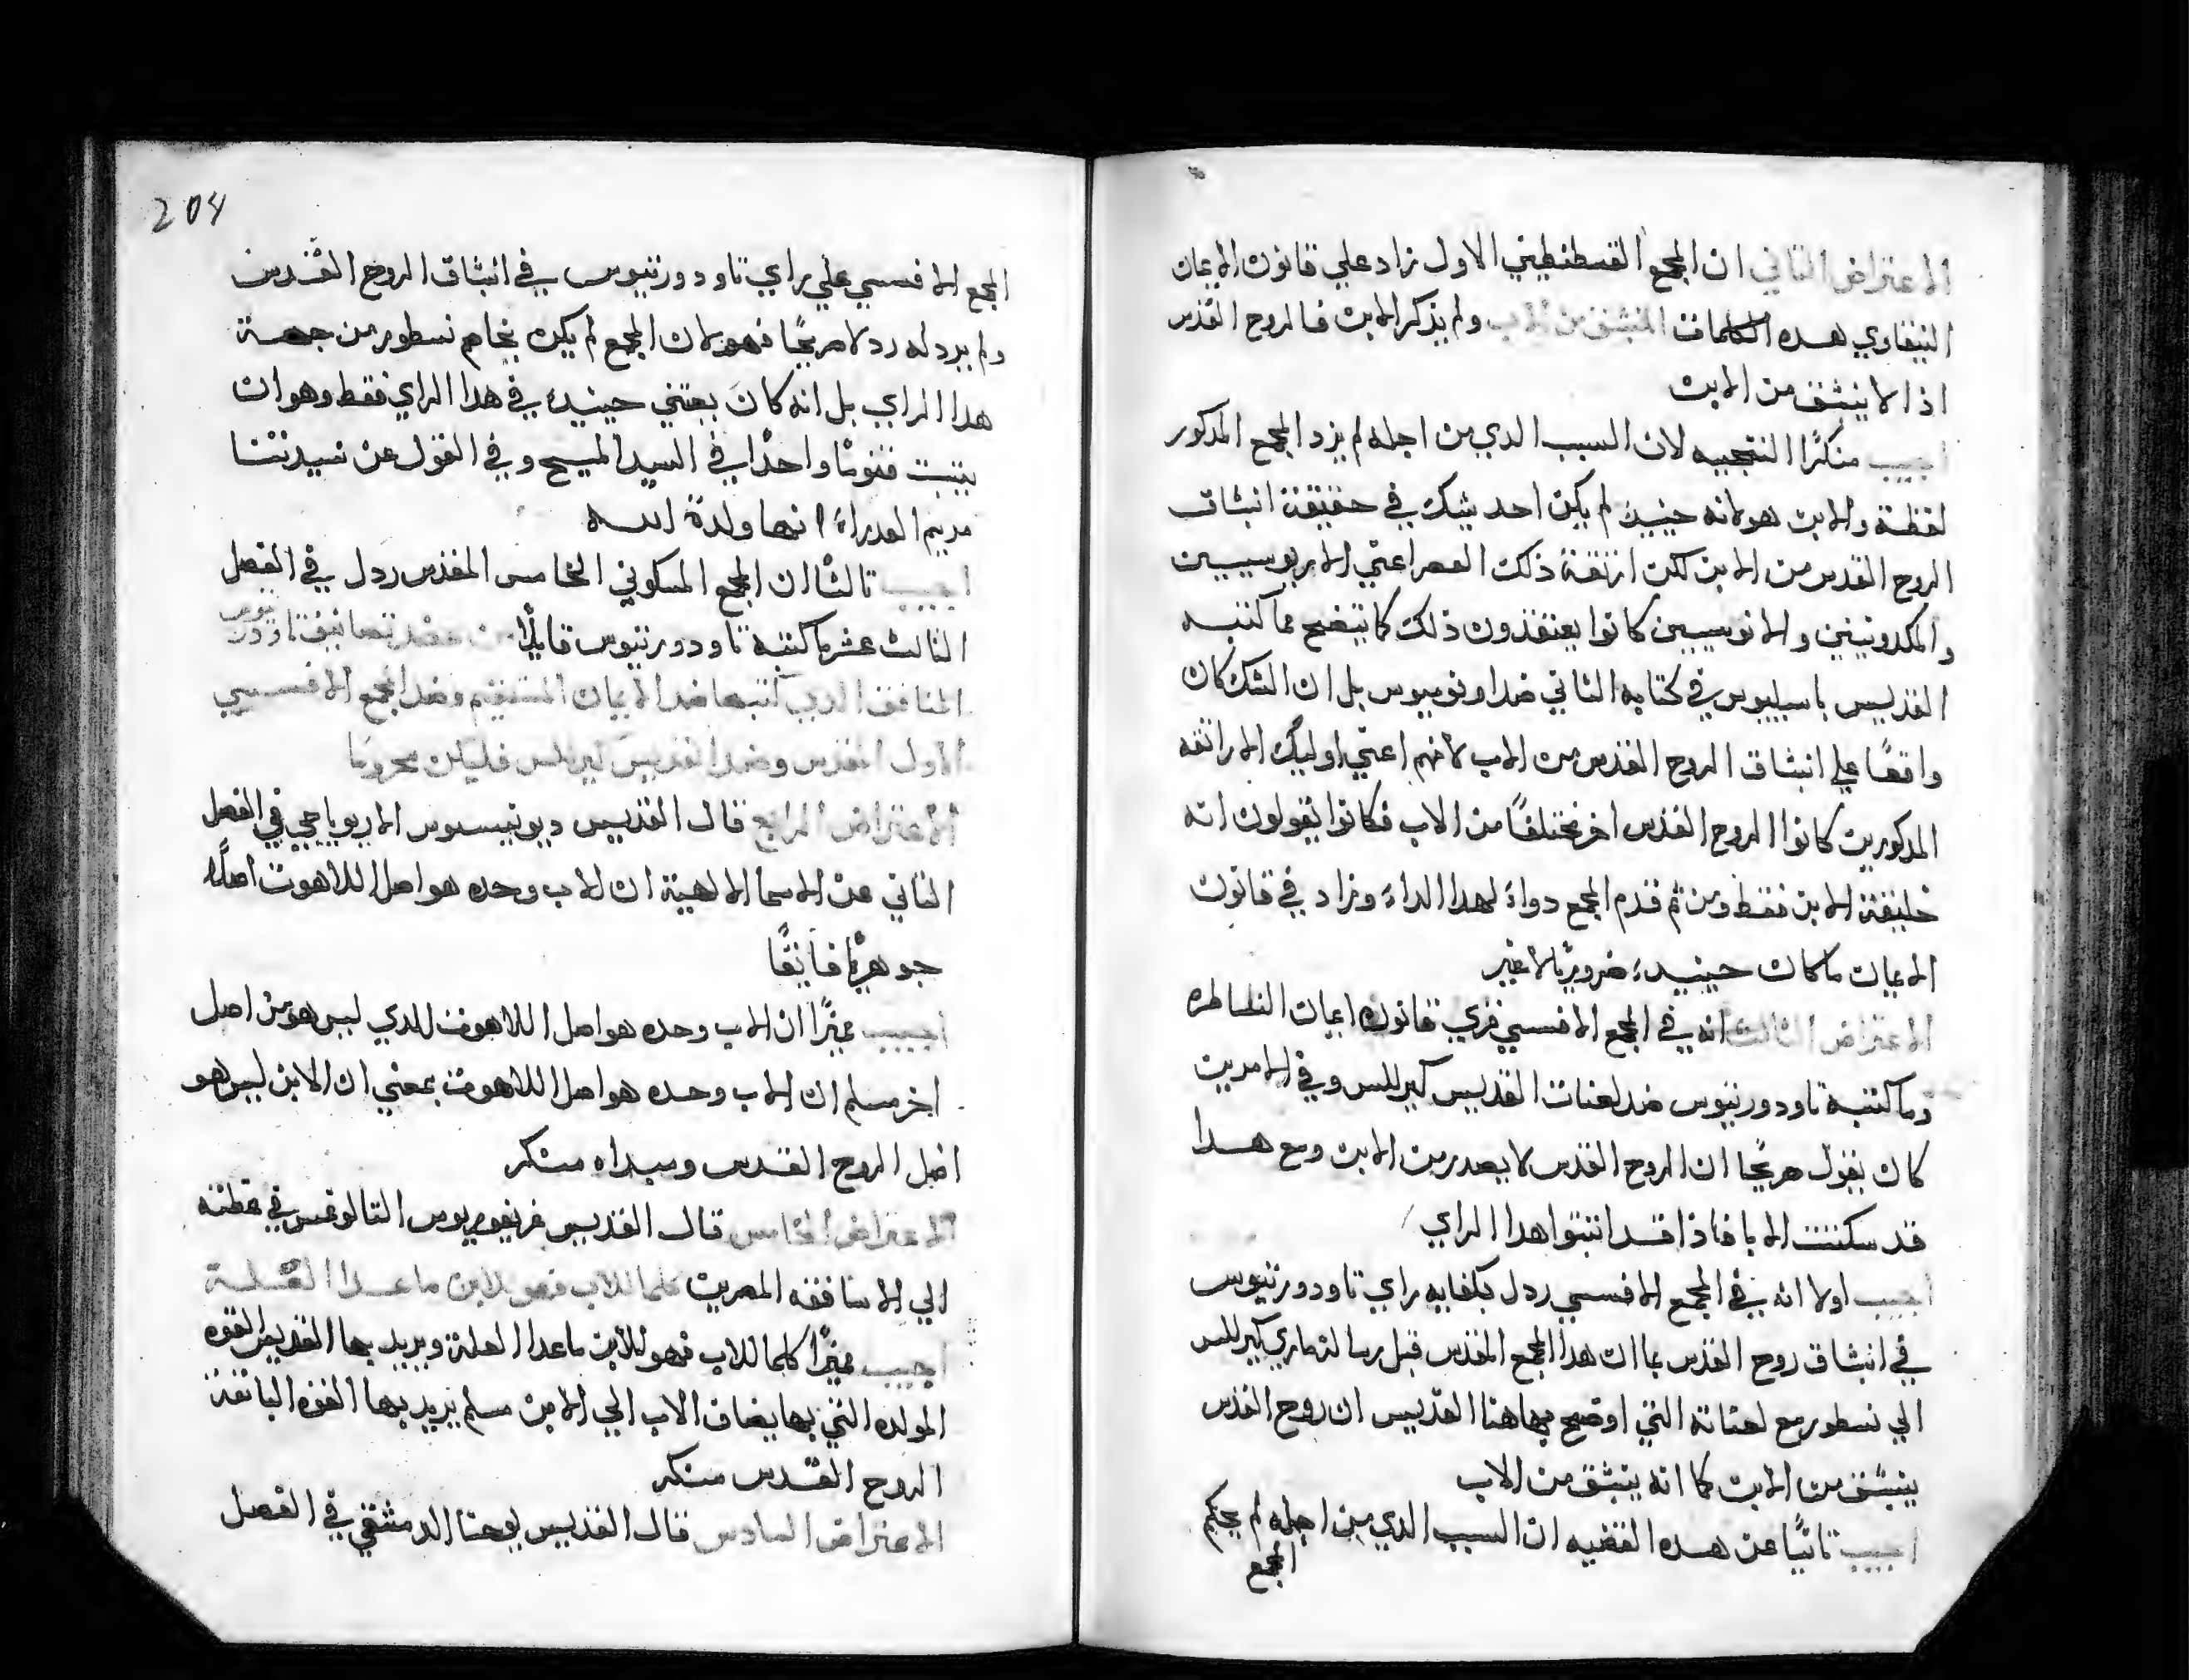 الاعتراض التاني ان المجمع القسطنطيني الاول زاد علي قانون الايمان
النيقاوي هده الكلمات المنبثق من الاب ولم يذكر الابن فالروح القدس
اذا لا ينبثق من الابن
اجيب منكرًا النتيجيه لان السبب الدي من اجله لم يزد المجمع المدكور
لفظة والابن هو لانه حينيدٍ لم يكن احد يشك في حقيقة انبثاق
الروح القدس من الابن لكن ارتقة ذلك العصر اعني الاريوسيين
والمكدونيين والانوسيين كانوا يعتقدون ذلك كما يتضح مما كتبه
القديس باسيليوس في كتابه التاني ضد اونوميوس بل ان الشك كان
واقعًا علي انبثاق الروح القدس من الاب لانهم اعني اوليك الاراتقه
المدكورين كانوا الروح القدس اخر مختلفًا من الاب فكانوا يقولون انه
خليقة الابن فقط ومن تم قدم المجمع دواءً لهدا الداء وزاد في قانون
الايمان ما كان حينيدٍ ضروريًا لا غير
الاعتراض الثالث انه في المجمع الافسسي قري قانون ايمان النساطره
وما كتبه تاودورتيوس ضد لعنات القديس كيرللس وفي الامرين
كان يقول صريحًا ان الروح القدس لا يصدر من الابن ومع هدا
قد سكتت الابا فاذا قد اتبتوا هدا الراي
اجيب اولا انه في المجمع الافسسي ردل بكفايه راي تاودورتيوس
في انبثاق روح القدس بما ان هدا المجمع المقدس قبل رسالة ماري كيرللس
الي نسطور مع لعناته التي اوضح بها هنا القديس ان روح القدس
ينبثق من الابن كما انه ينبثق من الاب
اجيب تانيًا عن هده القضيه ان السبب الدي من اجله لم يحكم
المجمع
204
المجمع الافسسي علي راي تاودورتيوس في انبثاق الروح القدس
ولم يردله ردلا صريحًا فهو لان المجمع لم يكن يخاصم نسطور من جهة
هدا الراي بل انه كان يعتني حينيدٍ في هدا الراي فقط وهو ان
يتبت قنومًا واحدًا في السيد المسيح وفي القول عن سيدتنا
مريم العدراء انها ولدة الله
اجيب تالثًا ان المجمع المسكوني الخامس المقدس ردل في الفصل
الثالث عشر ما كتبه تاودورتيوس قايلًا من عضد تصانيف تاودورتيوس
المنافق الدي كتبها ضد الايمان المستقيم وضد المجمع الافسسي
الاول المقدس وضد القديس كيرللس فليكن محرومًا
الاعتراض الرابع قال القديس ديونيسيوس الاريوباجي في الفصل
التاني من الاسما الالهية ان الاب وحده هو اصل اللاهوت اصلًا
جوهريًا فايقًا
اجيب مميزًا ان الاب وحده هو اصل اللاهوت للدي ليس هو من اصل
اخر مسلم ان الاب وحده هو اصل اللاهوت بمعني ان الابن ليس هو
اصل الروح القدس ومبداه منكر
الاعتراض الخامس قال القديس غريغوريوس التالوغس في عظته
الي الاساقفه المصريين كلما للاب فهو للابن ما عدا العلة
اجيب مميزًا كلما للاب فهو للابن ما عدا العلة ويريد بها القديس القوه
المولده التي بها يضاف الاب الي الابن مسلم يريد بها القوه الباثقة
الروح القدس منكر
الاعتراض السادس قال القديس يوحنا الدمشقي في الفصل